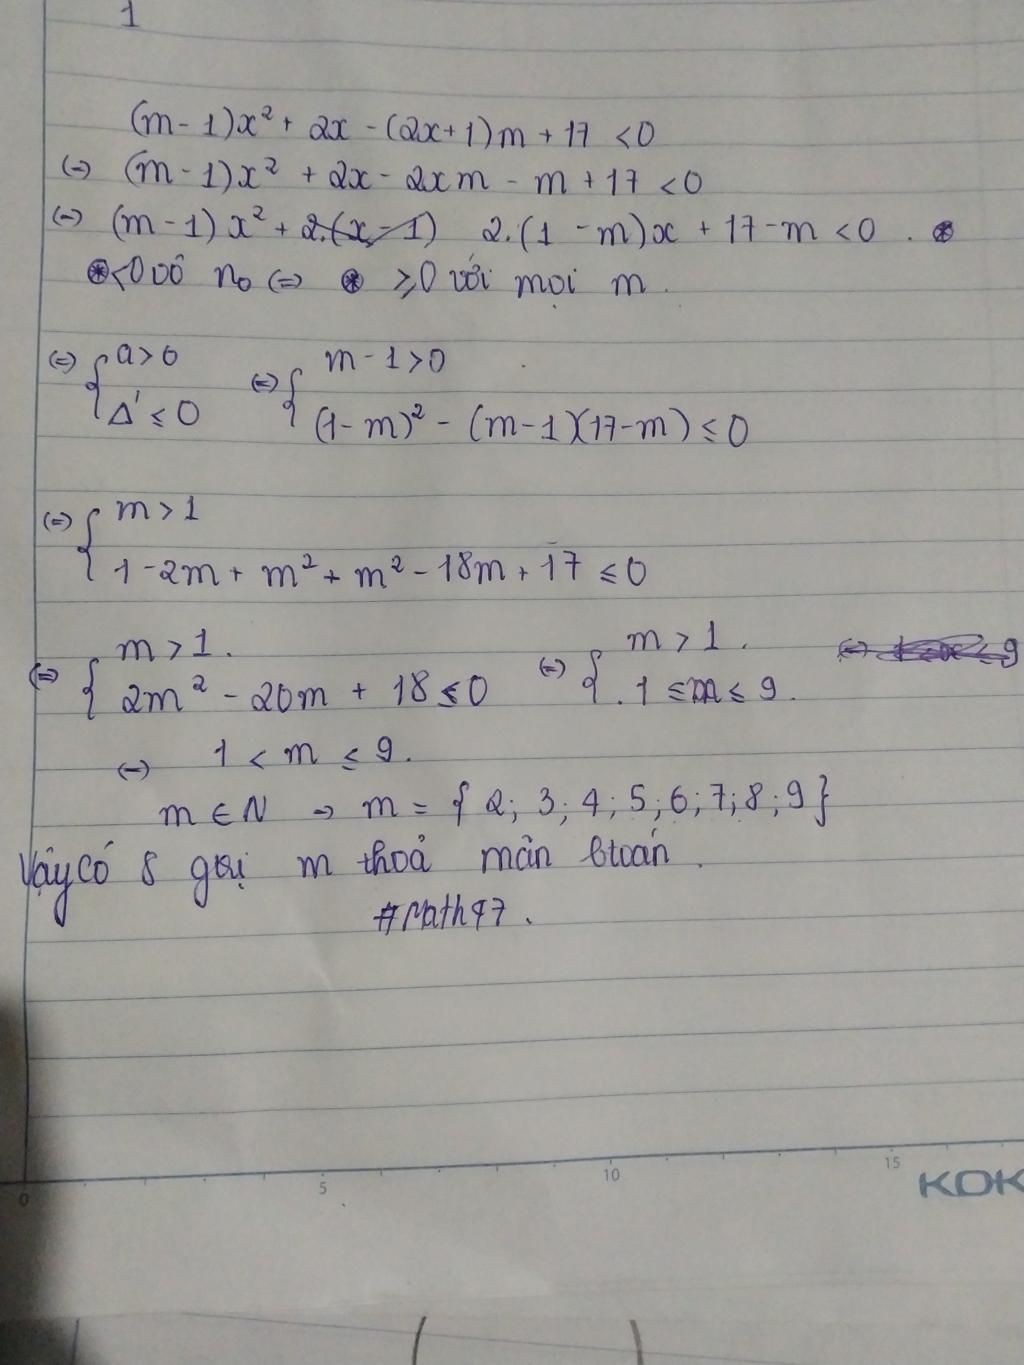 1
(m-1)x² + 2x - (2x+1)m + 17 < 0
(=) (m-1)x² + 2x - 2xm - m + 17 < 0
(=) (m-1)x² + 2.(x-1) 2.(1-m)x + 17-m < 0 . ⊛
⊛ < 0 vô n₀ (=) ⊛ ≥ 0 với mọi m.
(=) { a > 0 (=) { m - 1 > 0
Δ' ≤ 0 (1-m)² - (m-1)(17-m) ≤ 0
(=) { m > 1
1 - 2m + m² + m² - 18m + 17 ≤ 0
(=) { m > 1. (=) { m > 1.
2m² - 20m + 18 ≤ 0 . 1 ≤ m ≤ 9.
(=) 1 < m ≤ 9.
m ∈ N → m = { 2; 3; 4; 5; 6; 7; 8; 9 }
Vậy có 8 gtrị m thoả mãn btoán.
#Math97.
0 5 10 15
KOK